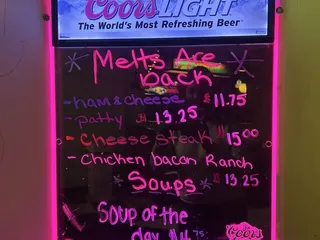 Coors LIGHT
The World's Most Refreshing Beer
Melts Are
back
- ham & cheese $11.75
- patty $13.25
- cheese steak $15.00
- chicken bacon Ranch
Soups $13.25
Soup of the
day $4.75
Coors